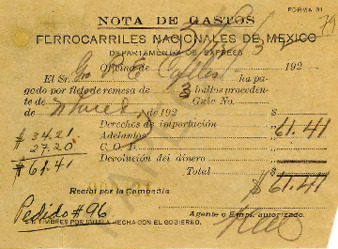 FORMA 31
NOTA DE GASTOS
79
FERROCARRILES NACIONALES DE MEXICO
DEPARTAMENTO DE EXPRESS
Oficina de 192
El Sr. Gro P. E. Calles ha pa-
gado por flete de remesa de 3 bultos proceden-
te de de 192 Guía No.
Derechos de importación $ 61.41
$ 34.21 Adelantos
27.20 C. O. D.
$ 61.41 Devolución del dinero
Total $ 61.41
Recibí por la Compañía
Pedido #96
Agente o Empl. autorizado.
SIN TIMBRES POR IGUALA HECHA CON EL GOBIERNO.